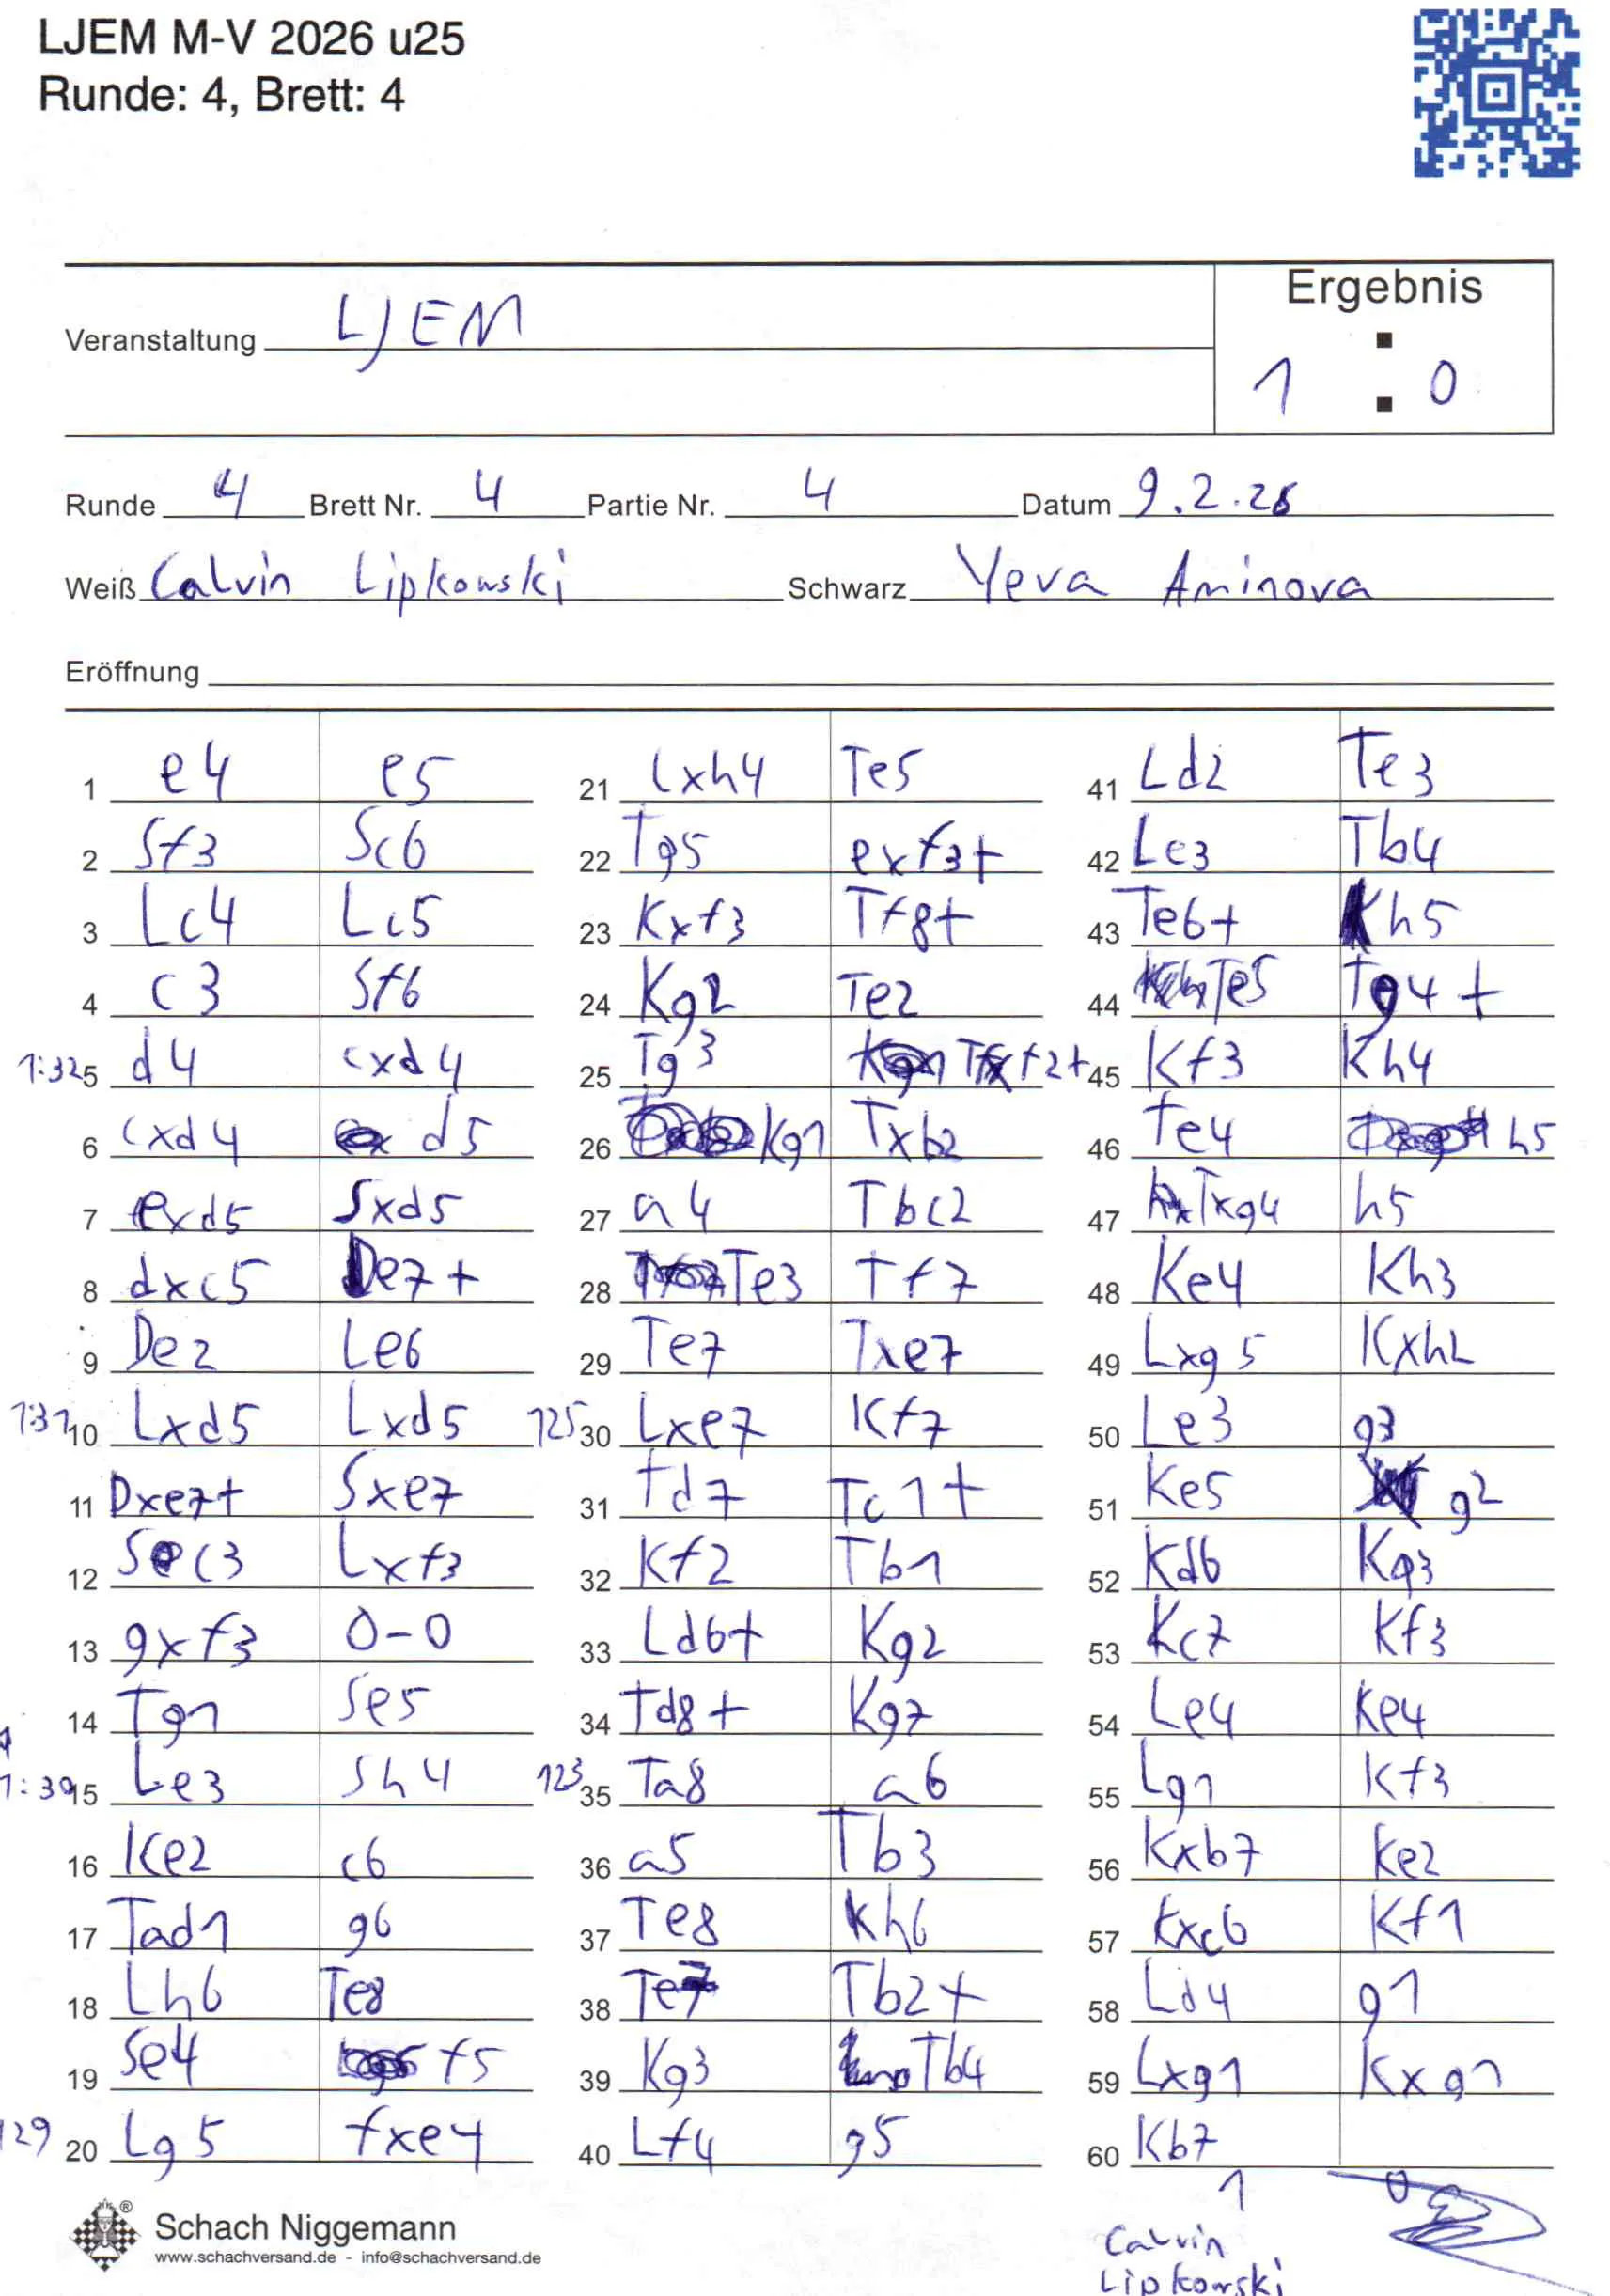 LJEM M-V 2026 u25
Runde: 4, Brett: 4
Ergebnis
Veranstaltung LJEM
1 : 0
Runde 4 Brett Nr. 4 Partie Nr. 4 Datum 9.2.26
Weiß Calvin Lipkowski Schwarz Yeva Aminova
Eröffnung
1 e4 e5
2 Sf3 Sc6
3 Lc4 Lc5
4 c3 Sf6
1:32 5 d4 cxd4
6 cxd4 d5
7 exd5 Sxd5
8 dxc5 De7+
9 De2 Le6
1:31 10 Lxd5 Lxd5
11 Dxe7+ Sxe7
12 Sc3 Lxf3
13 gxf3 0-0
14 Tg1 Se5
1:30 15 Le3 Sh4
16 Ke2 c6
17 Tad1 g6
18 Lh6 Te8
19 Se4 f5
129 20 Lg5 fxe4
21 Lxh4 Te5
22 Tg5 exf3+
23 Kxf3 Tf8+
24 Kg2 Te2
25 Tg3 Tfxf2+
26 Kg1 Txb2
27 a4 Tbc2
28 Te3 Tf7
29 Te7 Txe7
125 30 Lxe7 Kf7
31 Td7 Tc1+
32 Kf2 Tb1
33 Ld6+ Kg2
34 Td8+ Kg7
123 35 Ta8 a6
36 a5 Tb3
37 Te8 Kh6
38 Te7 Tb2+
39 Kg3 Tb4
40 Lf4 g5
41 Ld2 Te3
42 Le3 Tb4
43 Te6+ Kh5
44 Te5 Tg4+
45 Kf3 Kh4
46 Te4 h5
47 Txg4 h5
48 Ke4 Kh3
49 Lxg5 Kxh2
50 Le3 g3
51 Ke5 g2
52 Kd6 Kg3
53 Kc7 Kf3
54 Le4 Ke4
55 Lg1 Kf3
56 Kxb7 Ke2
57 Kxc6 Kf1
58 Ld4 g1
59 Lxg1 Kxg1
60 Kb7
1 0
Calvin
Lipkowski
Schach Niggemann
www.schachversand.de - info@schachversand.de